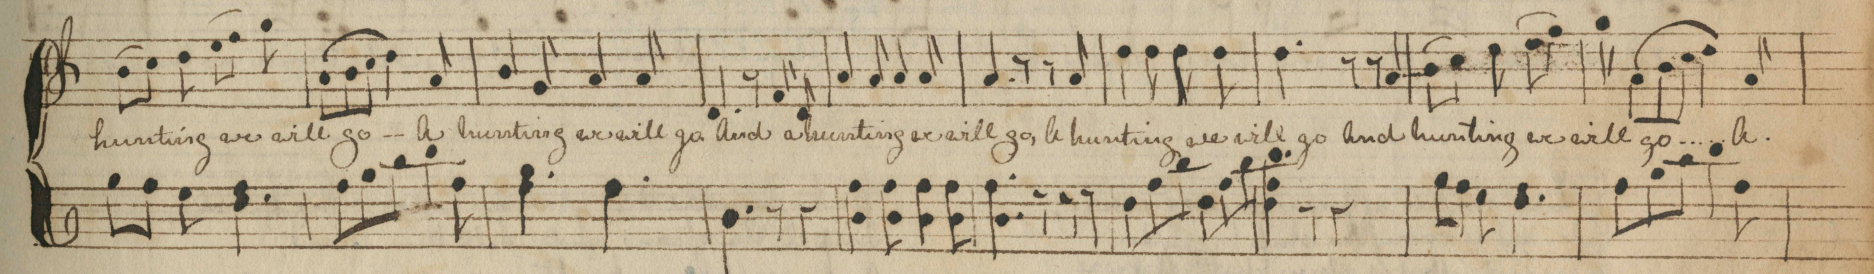 hunting we will go -- A hunting we will go, And a hunting we will go, A hunting we will go And hunting we will go..... A.